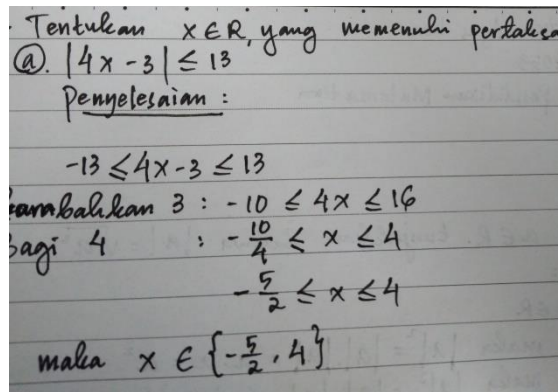 Tentukan x ∈ R, yang memenuhi
(a). |4x - 3| ≤ 13
Penyelesaian :
-13 ≤ 4x - 3 ≤ 13
3 : -10 ≤ 4x ≤ 16
Bagi 4 : -10/4 ≤ x ≤ 4
-5/2 ≤ x ≤ 4
maka x ∈ {-5/2, 4}